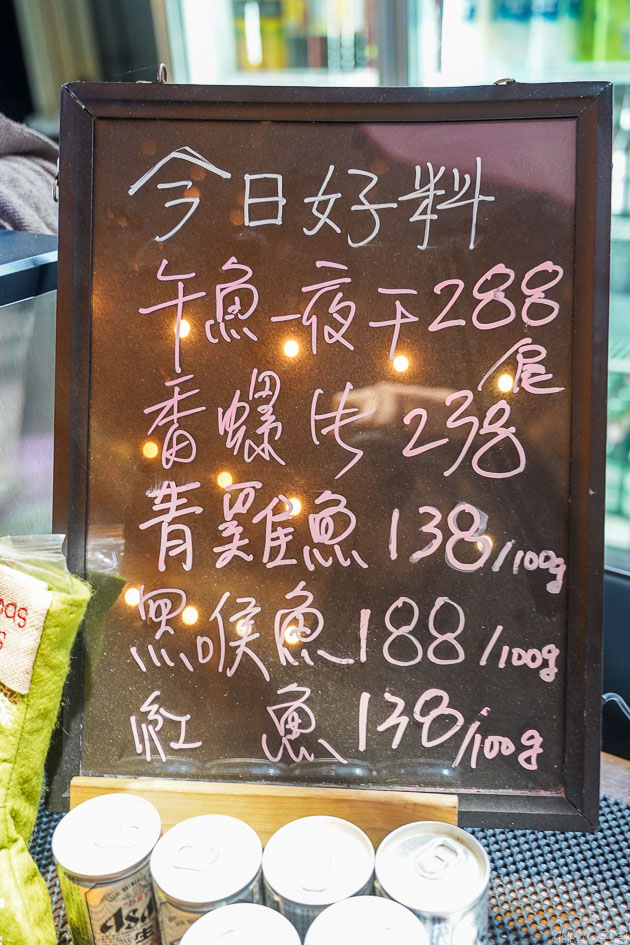 今日好料
午魚一夜干288
/尾
香螺 238
青雞魚 138/100g
黑喉魚 188/100g
紅 魚 138/100g
as
s
Asa
生